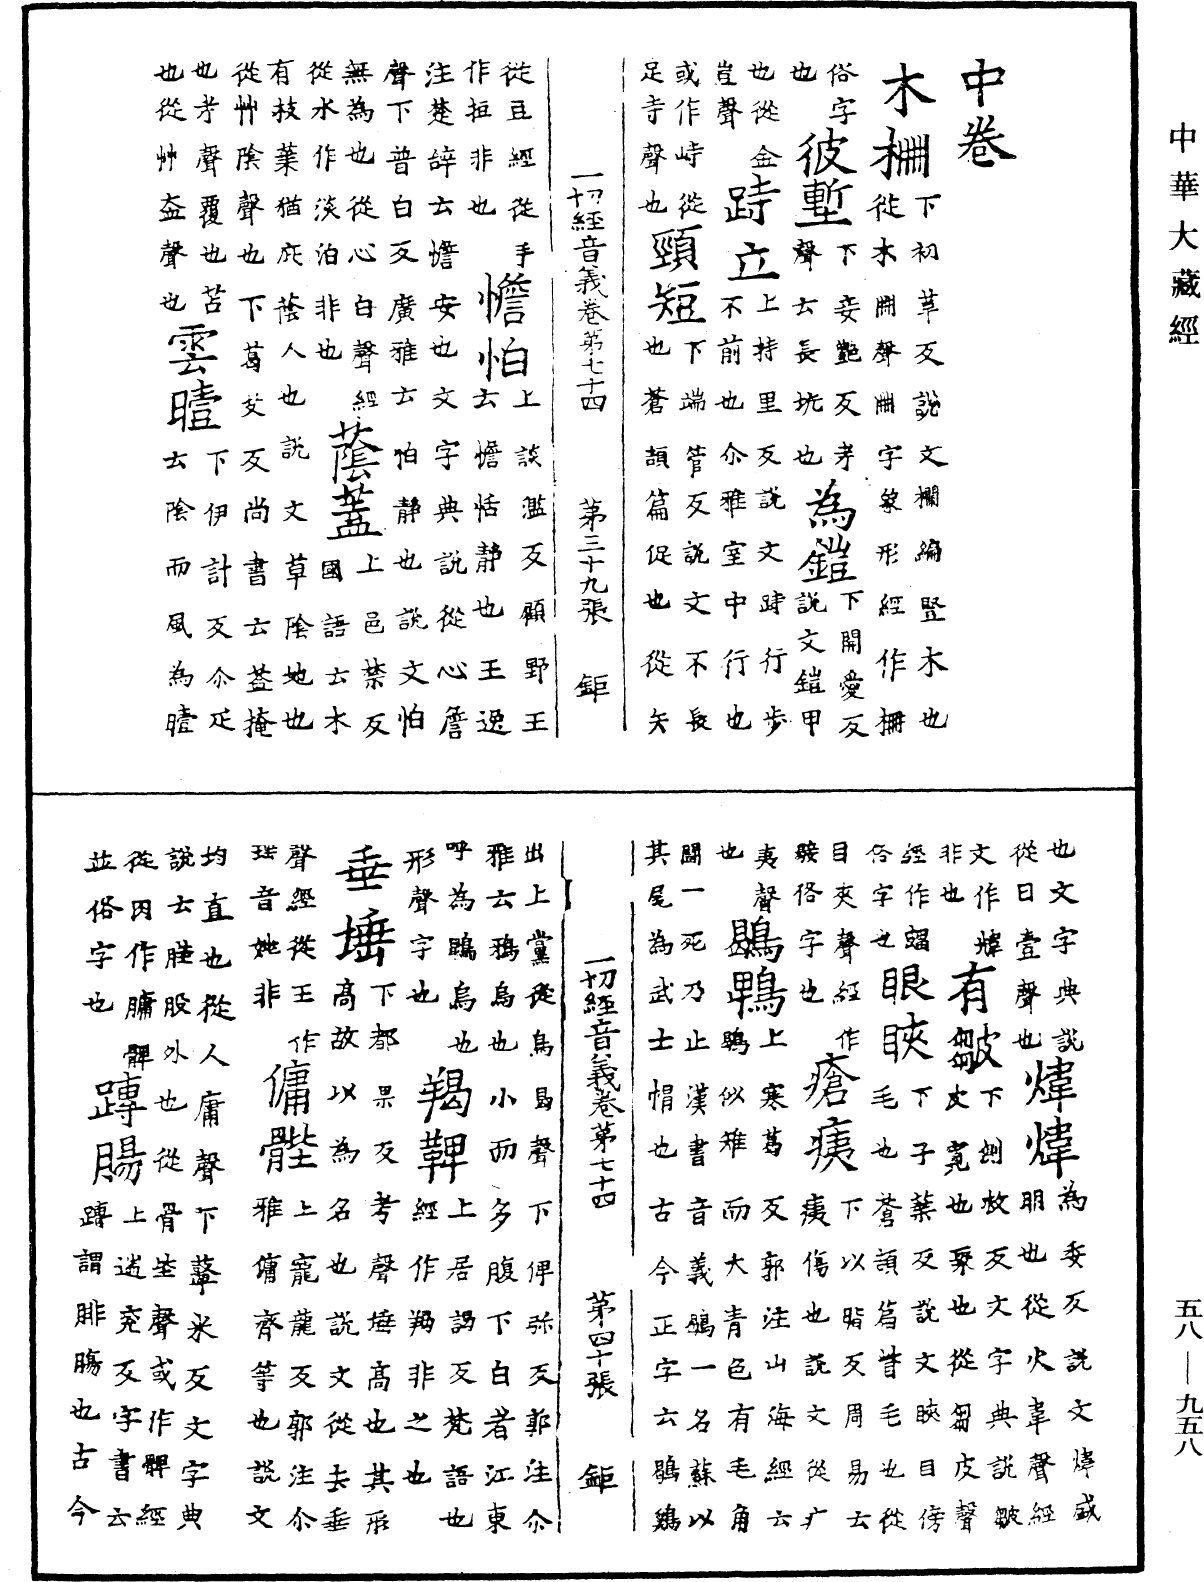 中華大藏經
中卷
木柵下初革反說文柵編豎木也從木冊聲冊字象形經作柵俗字也
彼塹下妾豔反考聲云長坑也
為鎧下開愛反說文鎧甲也從金豈聲
跱立上持里反說文跱行步不前也尒雅室中行也或作峙從足寺聲也
頸短下端管反說文不長也蒼頡篇促也從矢從豆經從手作挋非也
憺怕上談濫反顧野王云憺恬靜也王逸注楚辭云憺安也文字典說從心詹聲下普白反廣雅云怕靜也說文怕無為也從心白聲經從水作淡泊非也
蔭蓋上邑禁反國語云木有枝葉猶庇蔭人也說文草陰地也從艸陰聲也下葛艾反尚書云葢掩也考聲覆也苫也從艸盍聲也
雲曀下伊計反尒疋云陰而風為曀
一切經音義卷第七十四 第三十九張 鉅
也文字典說從日壹聲也
煒煒為委反說文煒盛明也從火韋聲經文作㷂非也
有皺下側救反文字典說皺皮寬也聚也從芻皮聲經作𧐖俗字也
眼睞下子葉反說文睞目傍毛也蒼頡篇眥毛也從目夾聲經作𥇒俗字也
瘡痍下以脂反周易云痍傷也說文從疒夷聲也
鶡鴨上寒葛反郭注山海經云鶡似雉而大青色有毛角鬬一死乃止漢書音義鶡一名蘇以其尾為武士帽也古今正字云鶡鷄出上黨從鳥曷聲下俾弥反郭注尒雅云鴉烏也小而多腹下白者江東呼為鵯烏也
羯鞞上居謁反梵語也經作羯非之也形聲字也
垂埵下都果反考聲埵高也其形高故以為名也說文從土垂聲經從玉作㻔音㛂非
傭䏶上寵龍反郭注尒雅傭齊等也說文均直也從人庸聲下鼙米反文字典說云䏶股外也從骨坒聲或作髀經從肉作𦟛髀並俗字也
蹲腸上遄兖反字書云蹲謂腓腸也古今
一切經音義卷第七十四 第四十張 鉅
五八—九五八